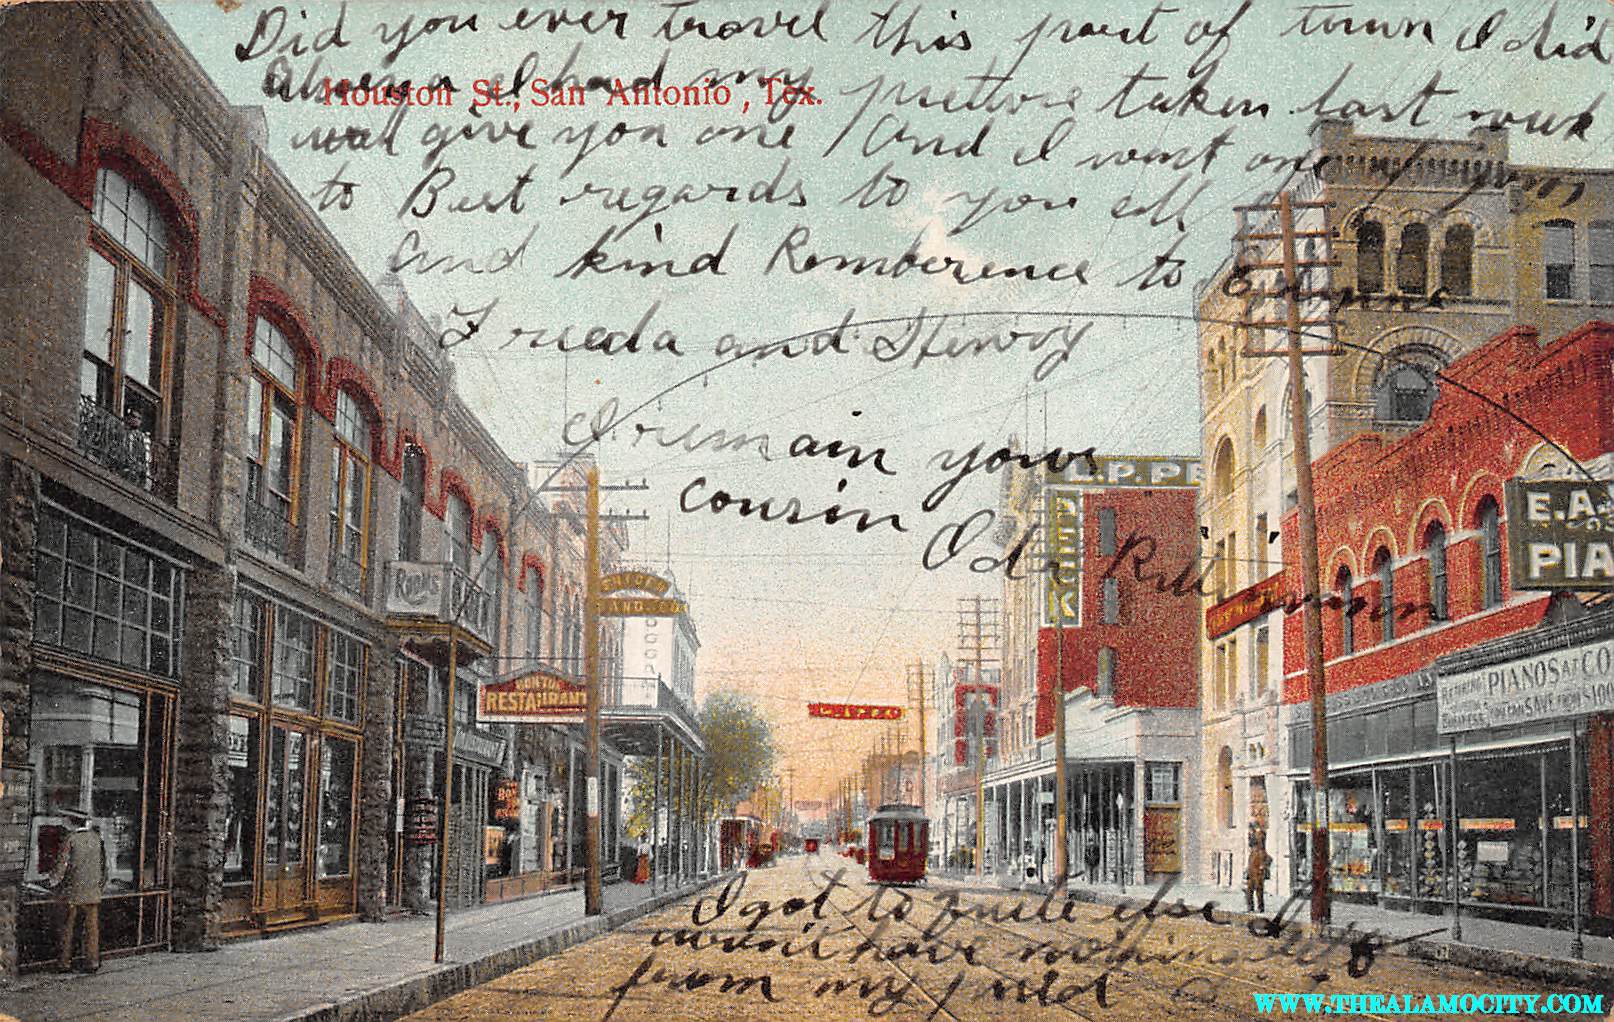 Did you ever travel this part of town I did
Houston St., San Antonio, Tex.
Always I had my picture taken last week
will give you one And I want one of yours
to Best regards to you all
And kind Rememberence to Emma
Frieda and Henry
I remain your
cousin
Oda
L.P. PE
PECK
E.A.
PIA
Ray's
AND
RESTAURANT
PIANOS AT CO
REPAIRING
YOU CAN SAVE FROM $100
I got to quite else I
won't have nothing left
from my
WWW.THEALAMOCITY.COM